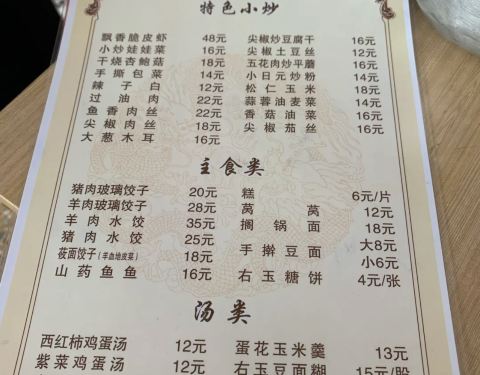 特色小炒
飘香脆皮虾 48元 尖椒炒豆腐干 16元
小炒娃娃菜 16元 尖椒土豆丝 12元
干烧杏鲍菇 18元 五花肉炒平蘑 16元
手撕包菜 14元 小日元炒粉 14元
辣子白 12元 松仁玉米 18元
过油肉 22元 蒜蓉油麦菜 16元
鱼香肉丝 22元 香菇油菜 16元
尖椒肉丝 18元 尖椒茄丝 16元
大葱木耳 16元
主食类
猪肉玻璃饺子 20元 糕 6元/片
羊肉玻璃饺子 28元 莴莴 12元
羊肉水饺 35元 搁锅面 18元
猪肉水饺 25元 手擀豆面 大8元
莜面饺子(羊血地皮菜) 18元 小6元
山药鱼鱼 16元 右玉糖饼 4元/张
汤类
西红柿鸡蛋汤 12元 蛋花玉米羹 13元
紫菜鸡蛋汤 12元 右玉豆面糊 15元/股